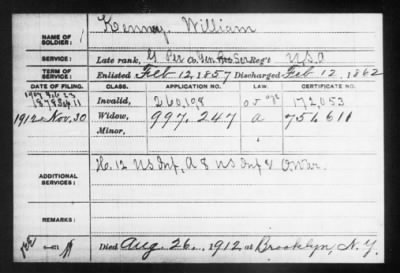 NAME OF SOLDIER: Kenny, William
SERVICE: Late rank, Co. Gen. Ser. Reg't U.S.A
TERM OF SERVICE: Enlisted Feb 12, 1857 Discharged Feb 12, 1862
DATE OF FILING. CLASS. APPLICATION NO. CERTIFICATE NO.
1878 Sep. 11 Invalid, 260,198 172,053
1912 Nov. 30 Widow, 997,247 a 754611
Minor,
ADDITIONAL SERVICES: H. 12 US Inf, A 8 US Inf &
REMARKS:
Died Aug. 26, 1912, at Brooklyn, N.Y.